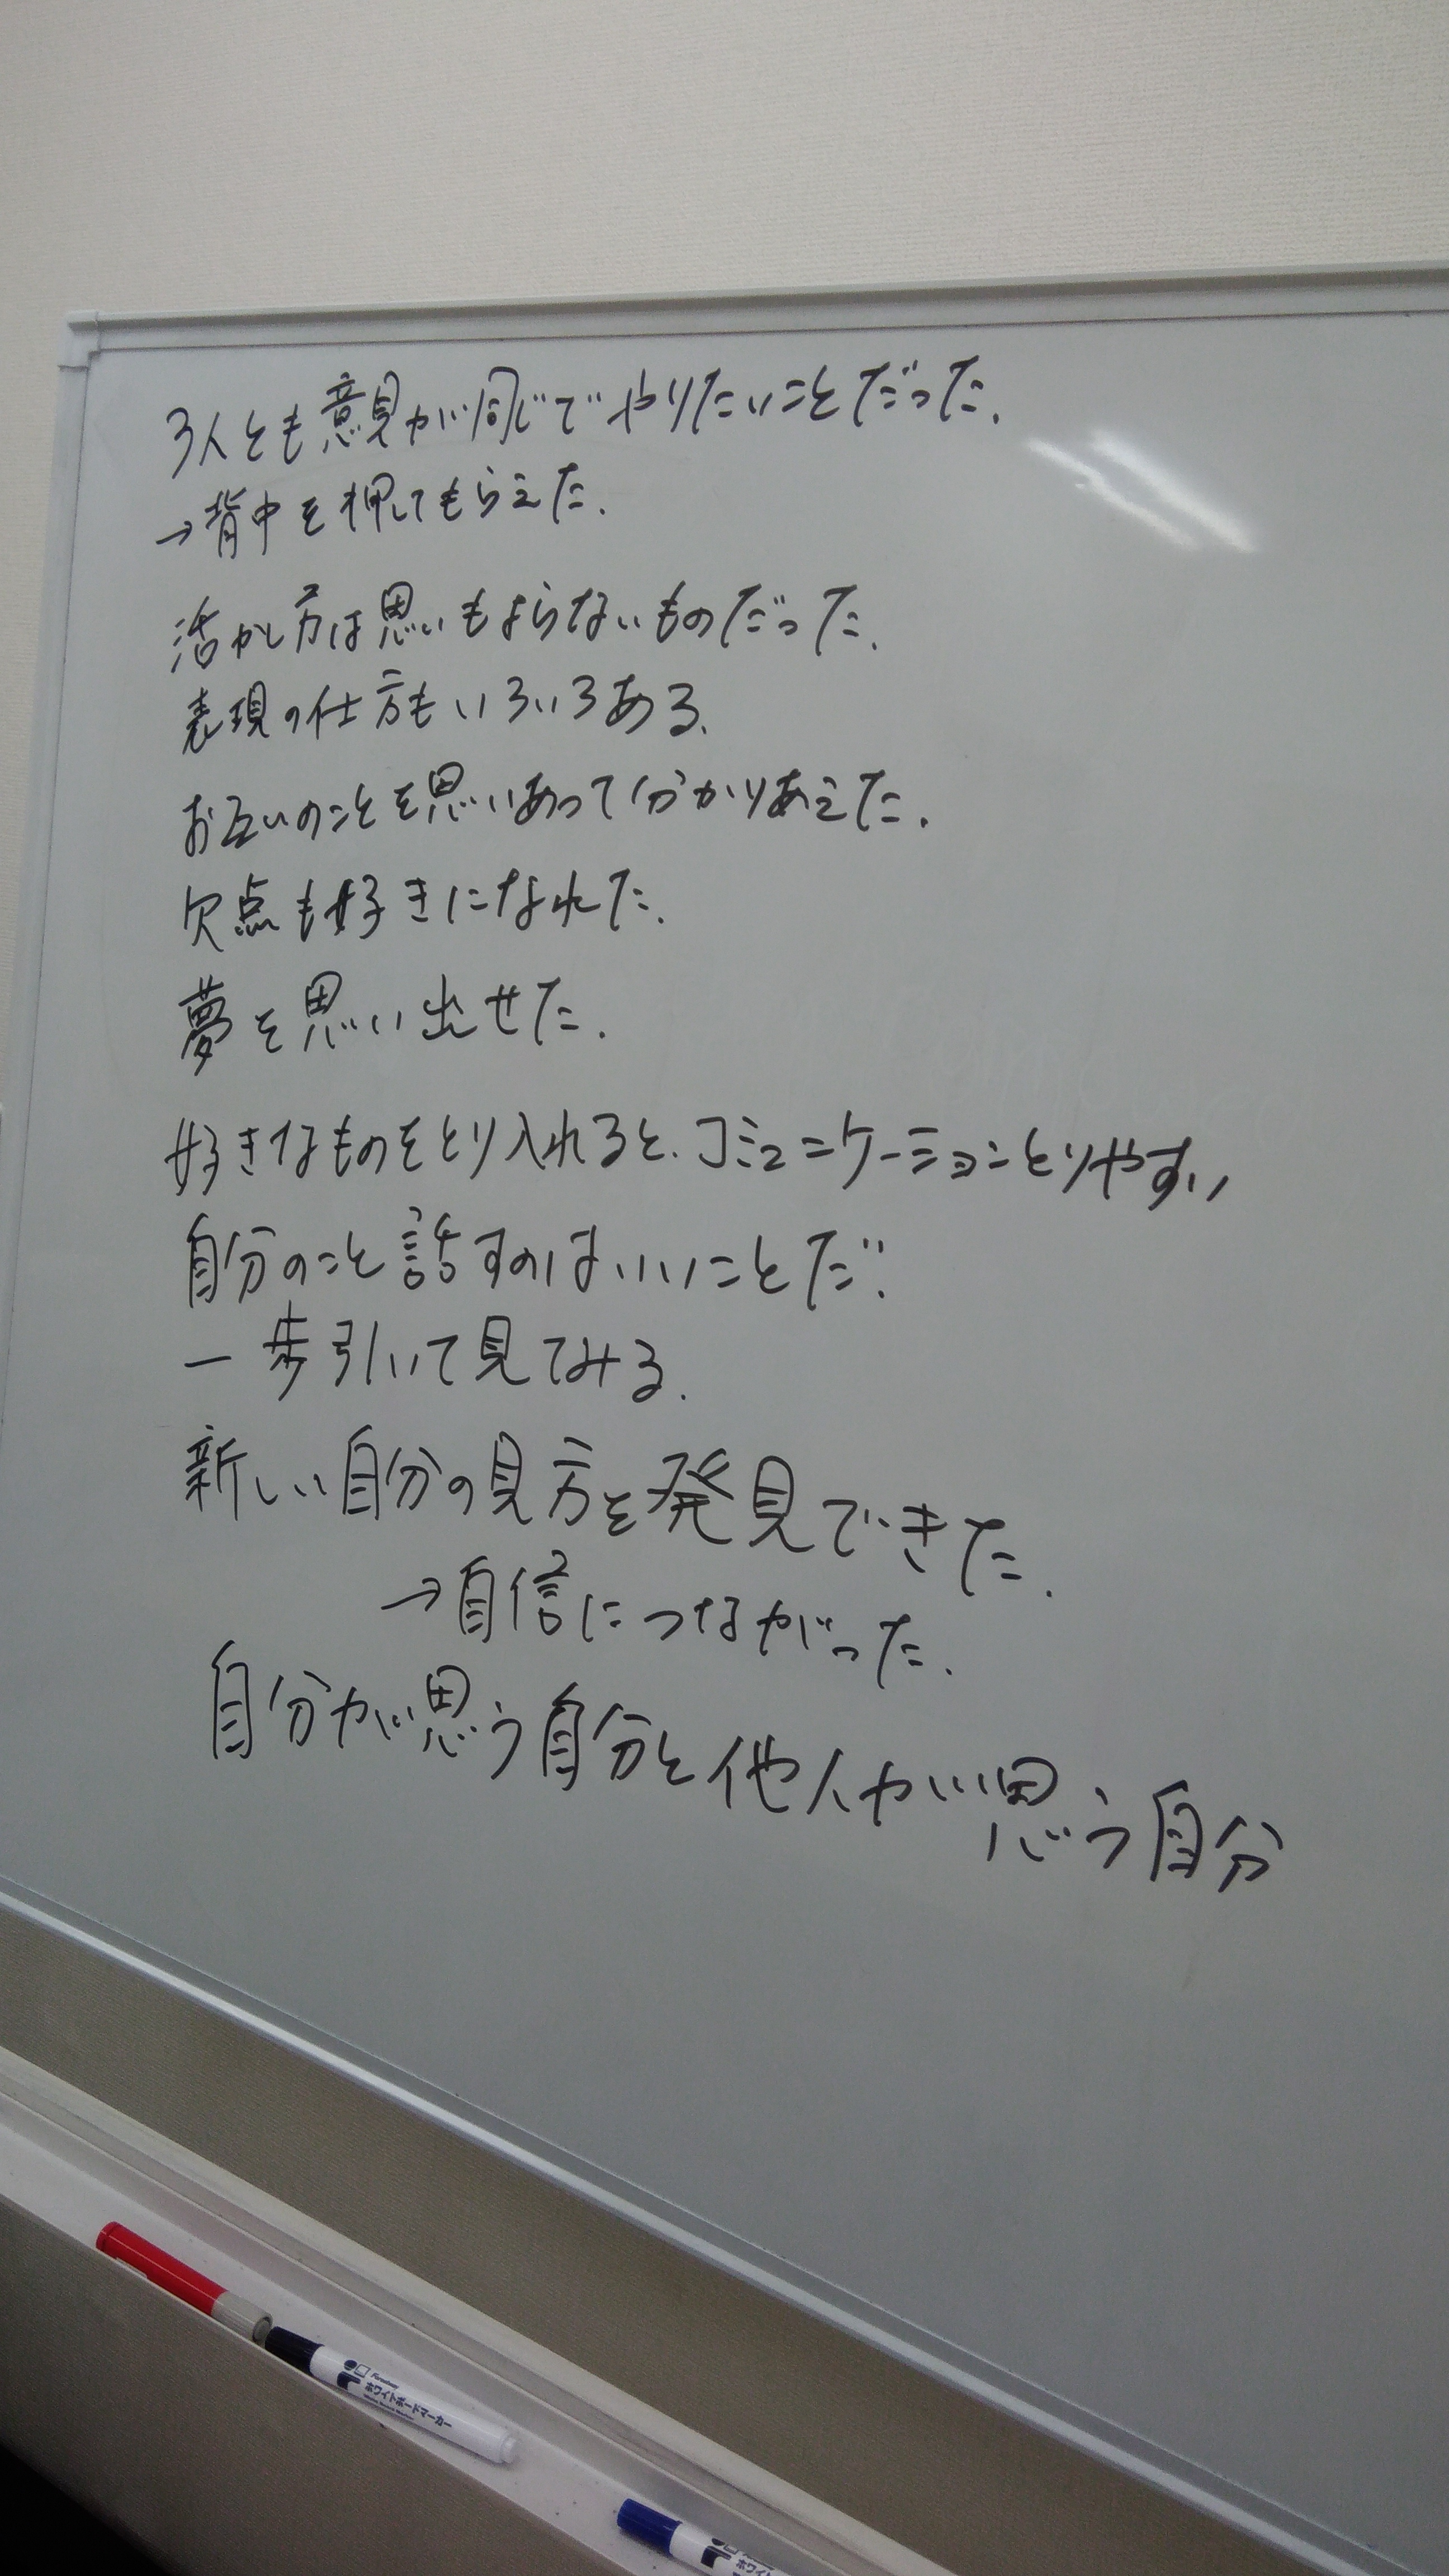 3人とも意見が同じでやりたいことだった.
→背中を押してもらえた.
活かし方は思いもよらないものだった.
表現の仕方もいろいろある.
お互いのことを思いあって分かりあえた.
欠点も好きになれた.
夢を思い出せた.
好きなものをとり入れると、コミュニケーションとりやすい
自分のこと話すのはいいことだ.
一歩引いて見てみる.
新しい自分の見方を発見できた.
→自信につながった.
自分が思う自分と他人が思う自分
ホワイトボードマーカー
ホワイト